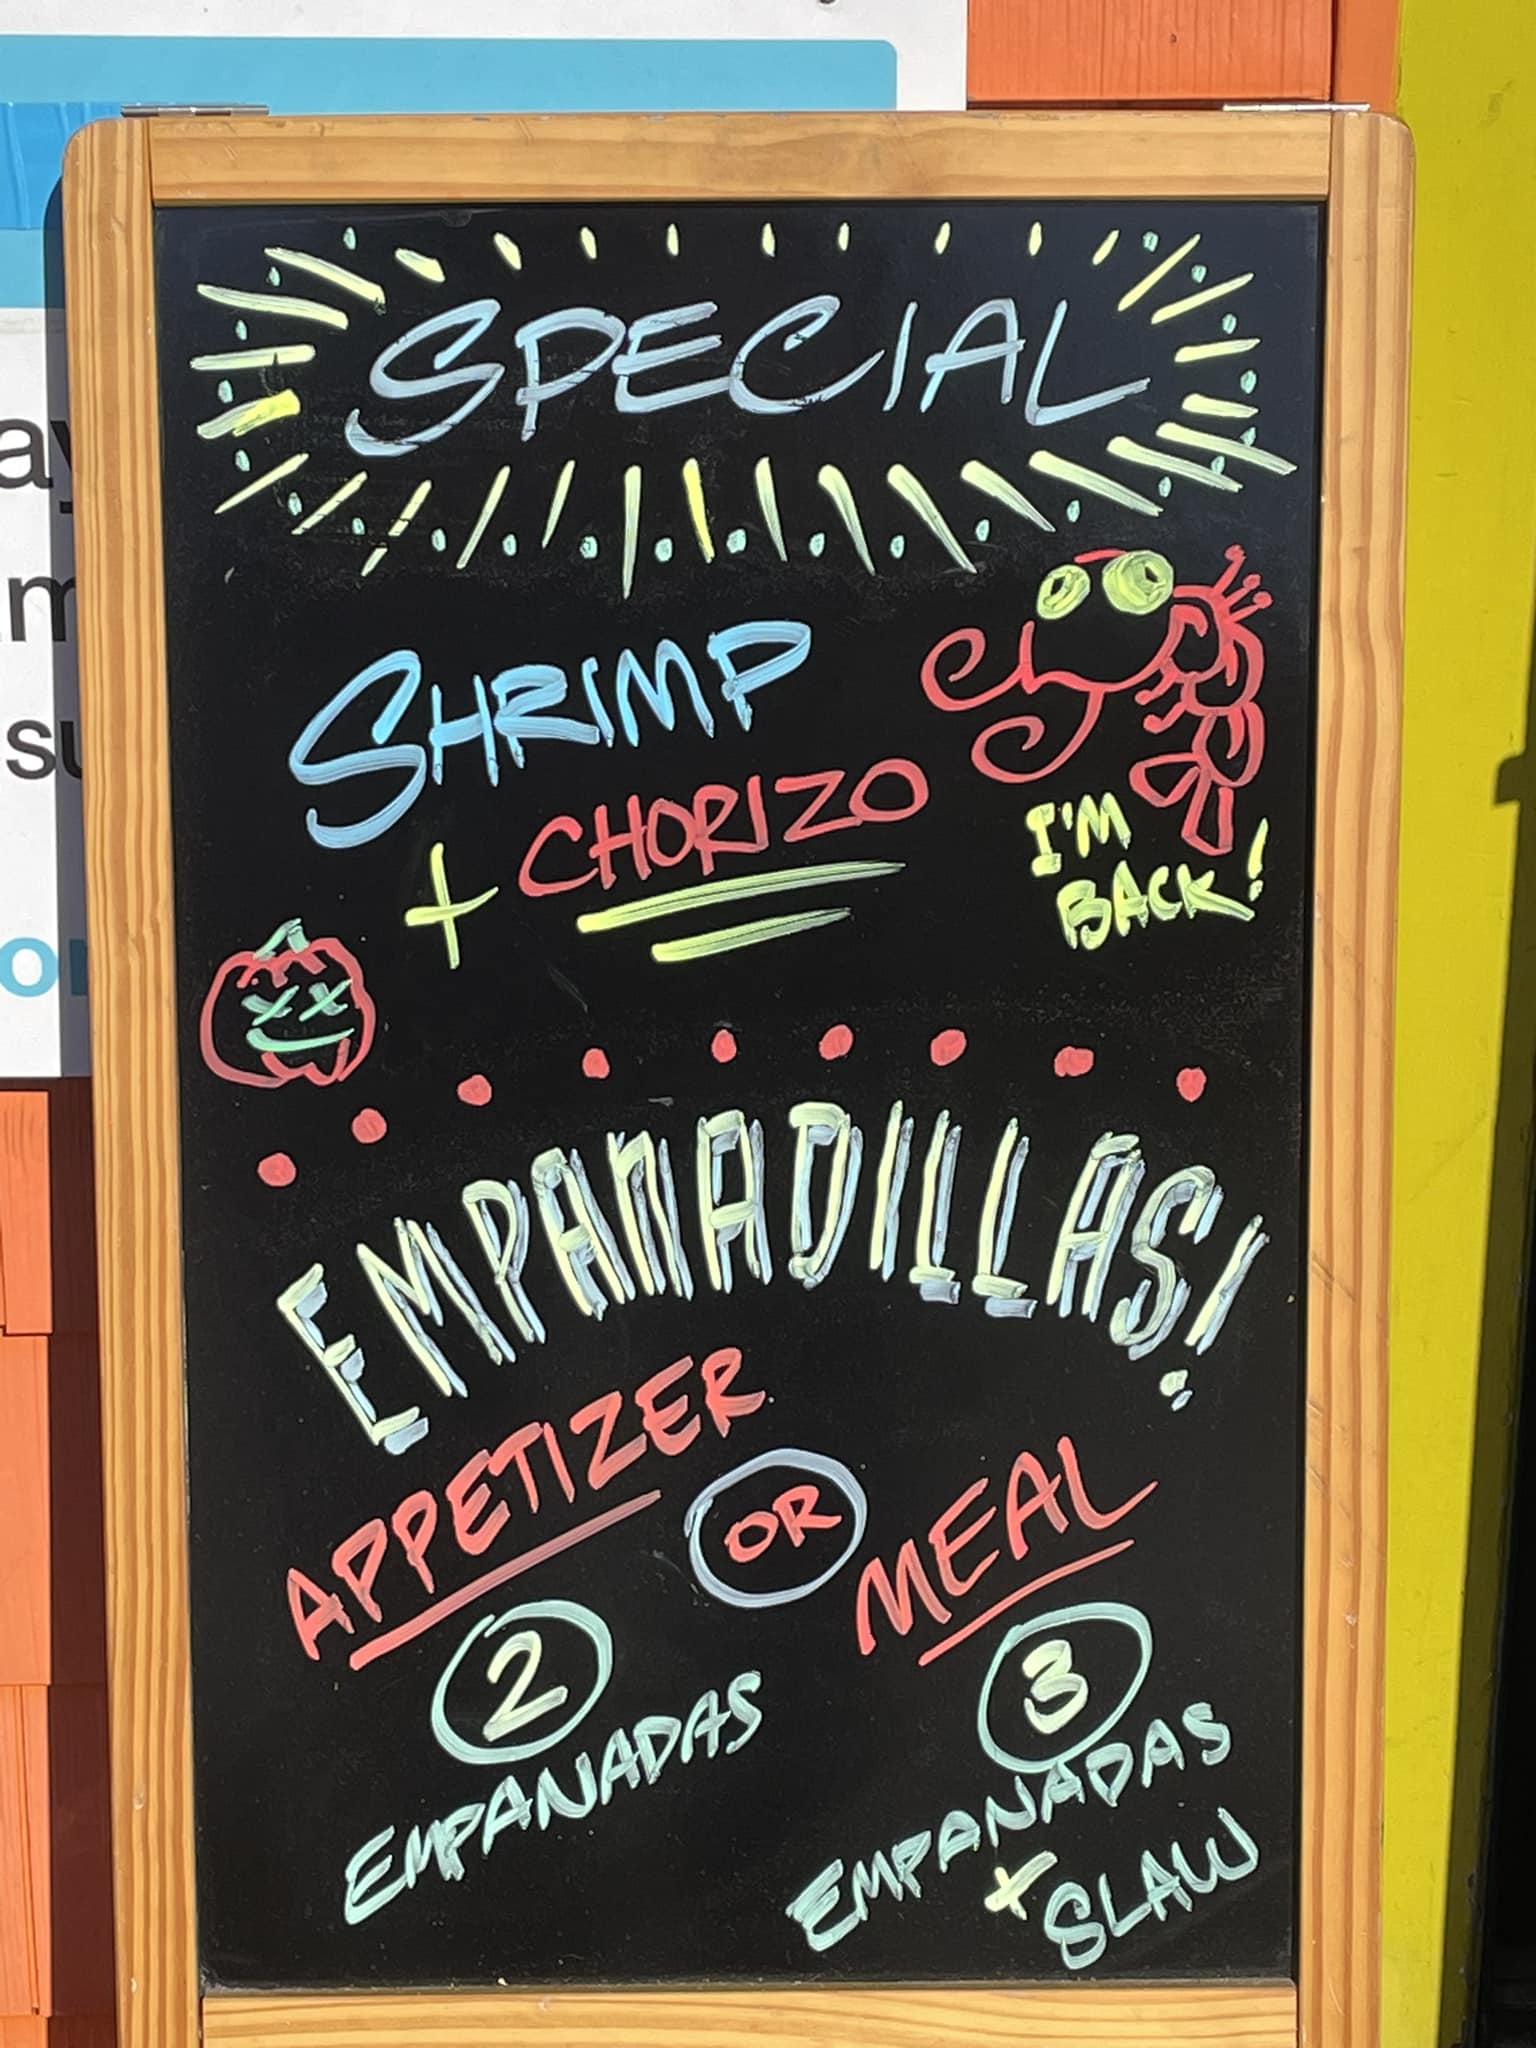 SPECIAL
SHRIMP
+ CHORIZO
I'M
BACK!
EMPANADILLAS!
APPETIZER
OR
MEAL
2
EMPANADAS
3
EMPANADAS
+ SLAW